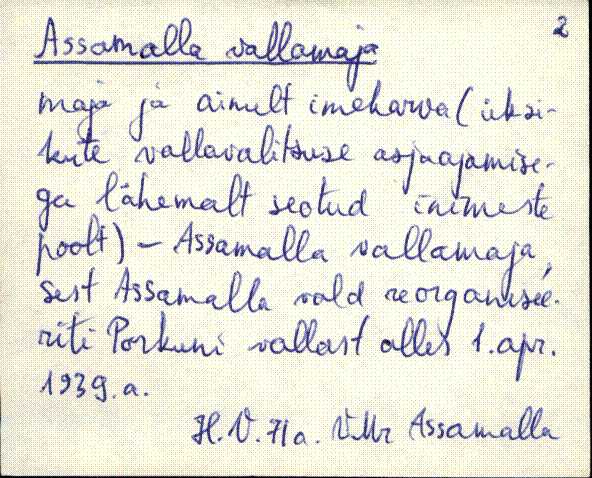 2
Assamalla vallamaja
maja ja ainult imeharva (üksi-
kute vallavalitsuse asjaajamise-
ga lähemalt seotud inimeste
poolt) – Assamalla vallamaja,
sest Assamalla vald reorganisee-
riti Porkuni vallast alles 1. apr.
1939. a.
H. V. 71 a. VMr Assamalla